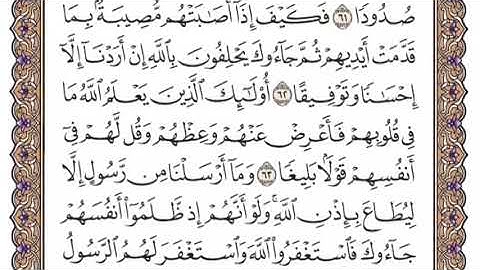 صُدُودًا ٦١ فَكَيْفَ إِذَآ أَصَٰبَتْهُم مُّصِيبَةٌۢ بِمَا
قَدَّمَتْ أَيْدِيهِمْ ثُمَّ جَآءُوكَ يَحْلِفُونَ بِٱللَّهِ إِنْ أَرَدْنَآ إِلَّآ
إِحْسَٰنًا وَتَوْفِيقًا ٦٢ أُو۟لَٰٓئِكَ ٱلَّذِينَ يَعْلَمُ ٱللَّهُ مَا
فِى قُلُوبِهِمْ فَأَعْرِضْ عَنْهُمْ وَعِظْهُمْ وَقُل لَّهُمْ فِىٓ
أَنفُسِهِمْ قَوْلًۢا بَلِيغًا ٦٣ وَمَآ أَرْسَلْنَا مِن رَّسُولٍ إِلَّا
لِيُطَاعَ بِإِذْنِ ٱللَّهِ ۚ وَلَوْ أَنَّهُمْ إِذ ظَّلَمُوٓا۟ أَنفُسَهُمْ
جَآءُوكَ فَٱسْتَغْفَرُوا۟ ٱللَّهَ وَٱسْتَغْفَرَ لَهُمُ ٱلرَّسُولُ